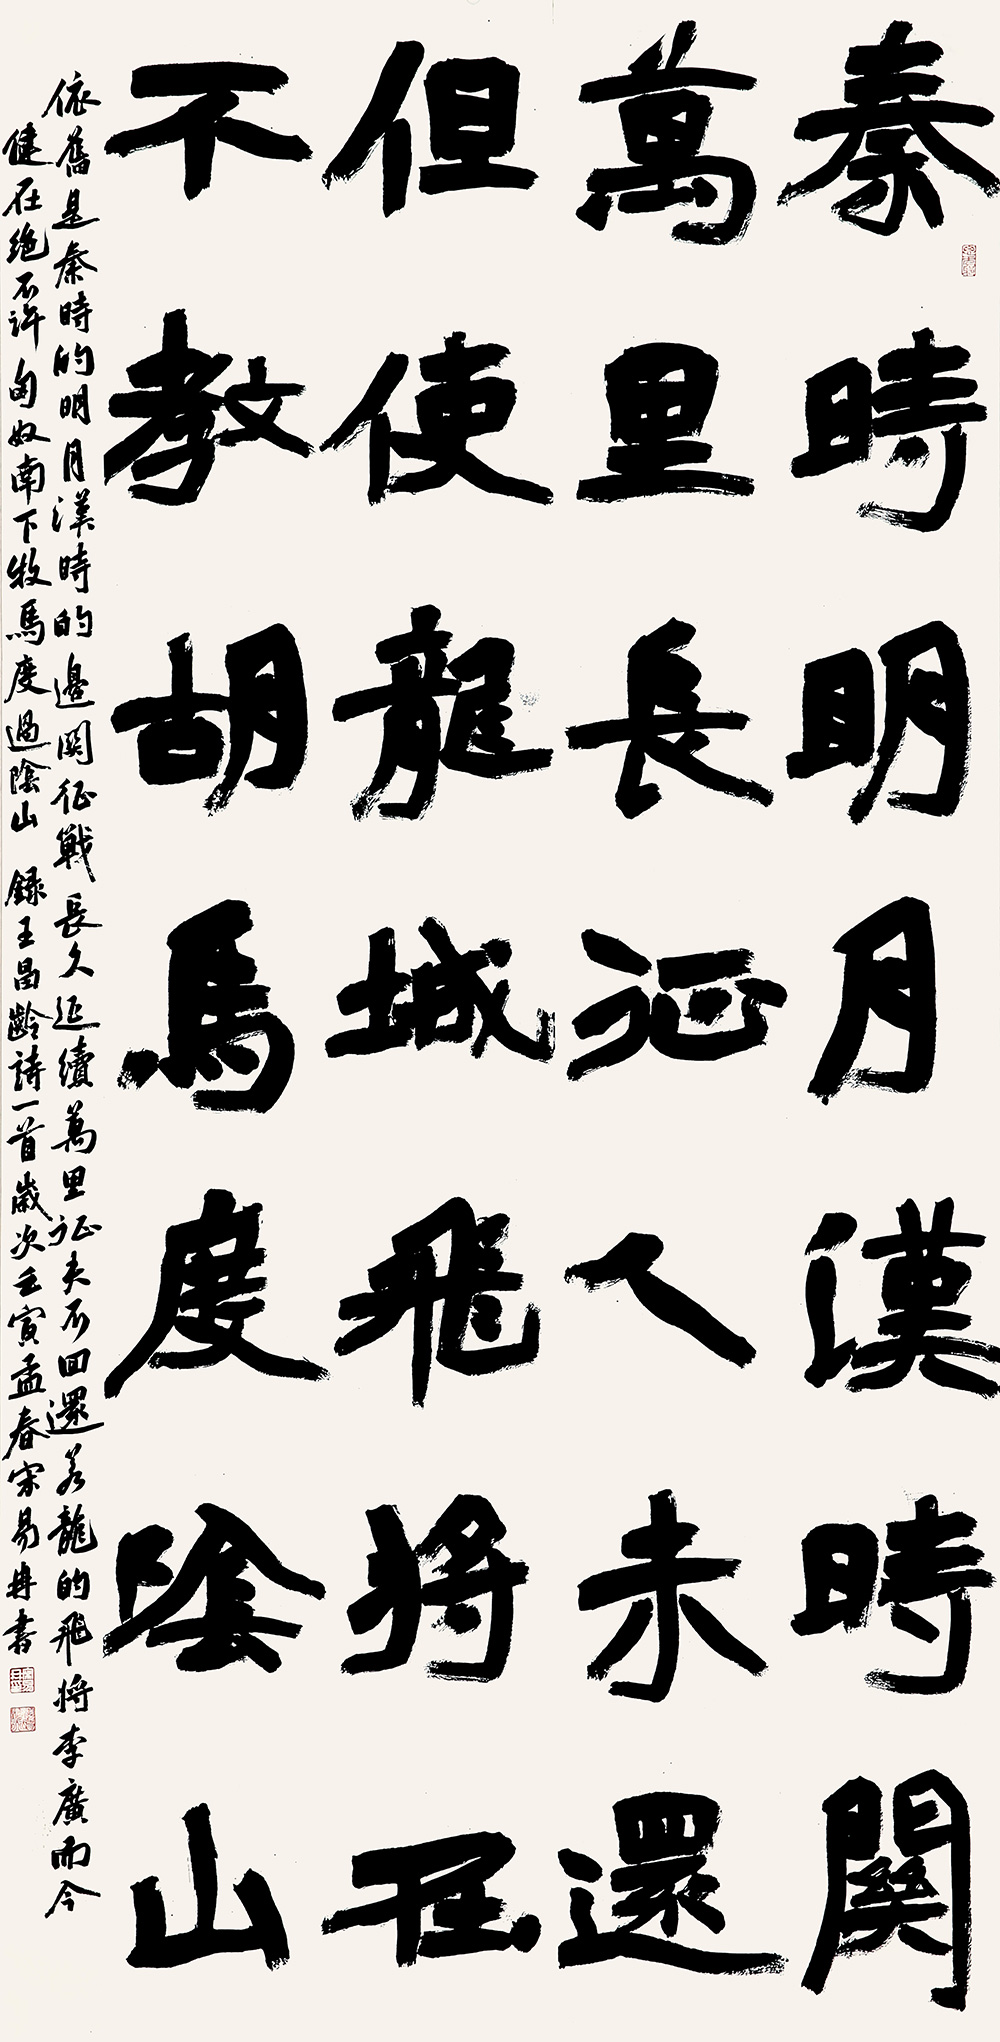 秦時明月漢時關
萬里長征人未還
但使龍城飛將在
不教胡馬度陰山
依舊是秦時的明月漢時的邊関征戰長久延續萬里征夫不回還若龍的飛将李廣而今
健在绝不許匈奴南下牧馬度過陰山 録王昌齡詩一首歲次壬寅孟春宋易冉書